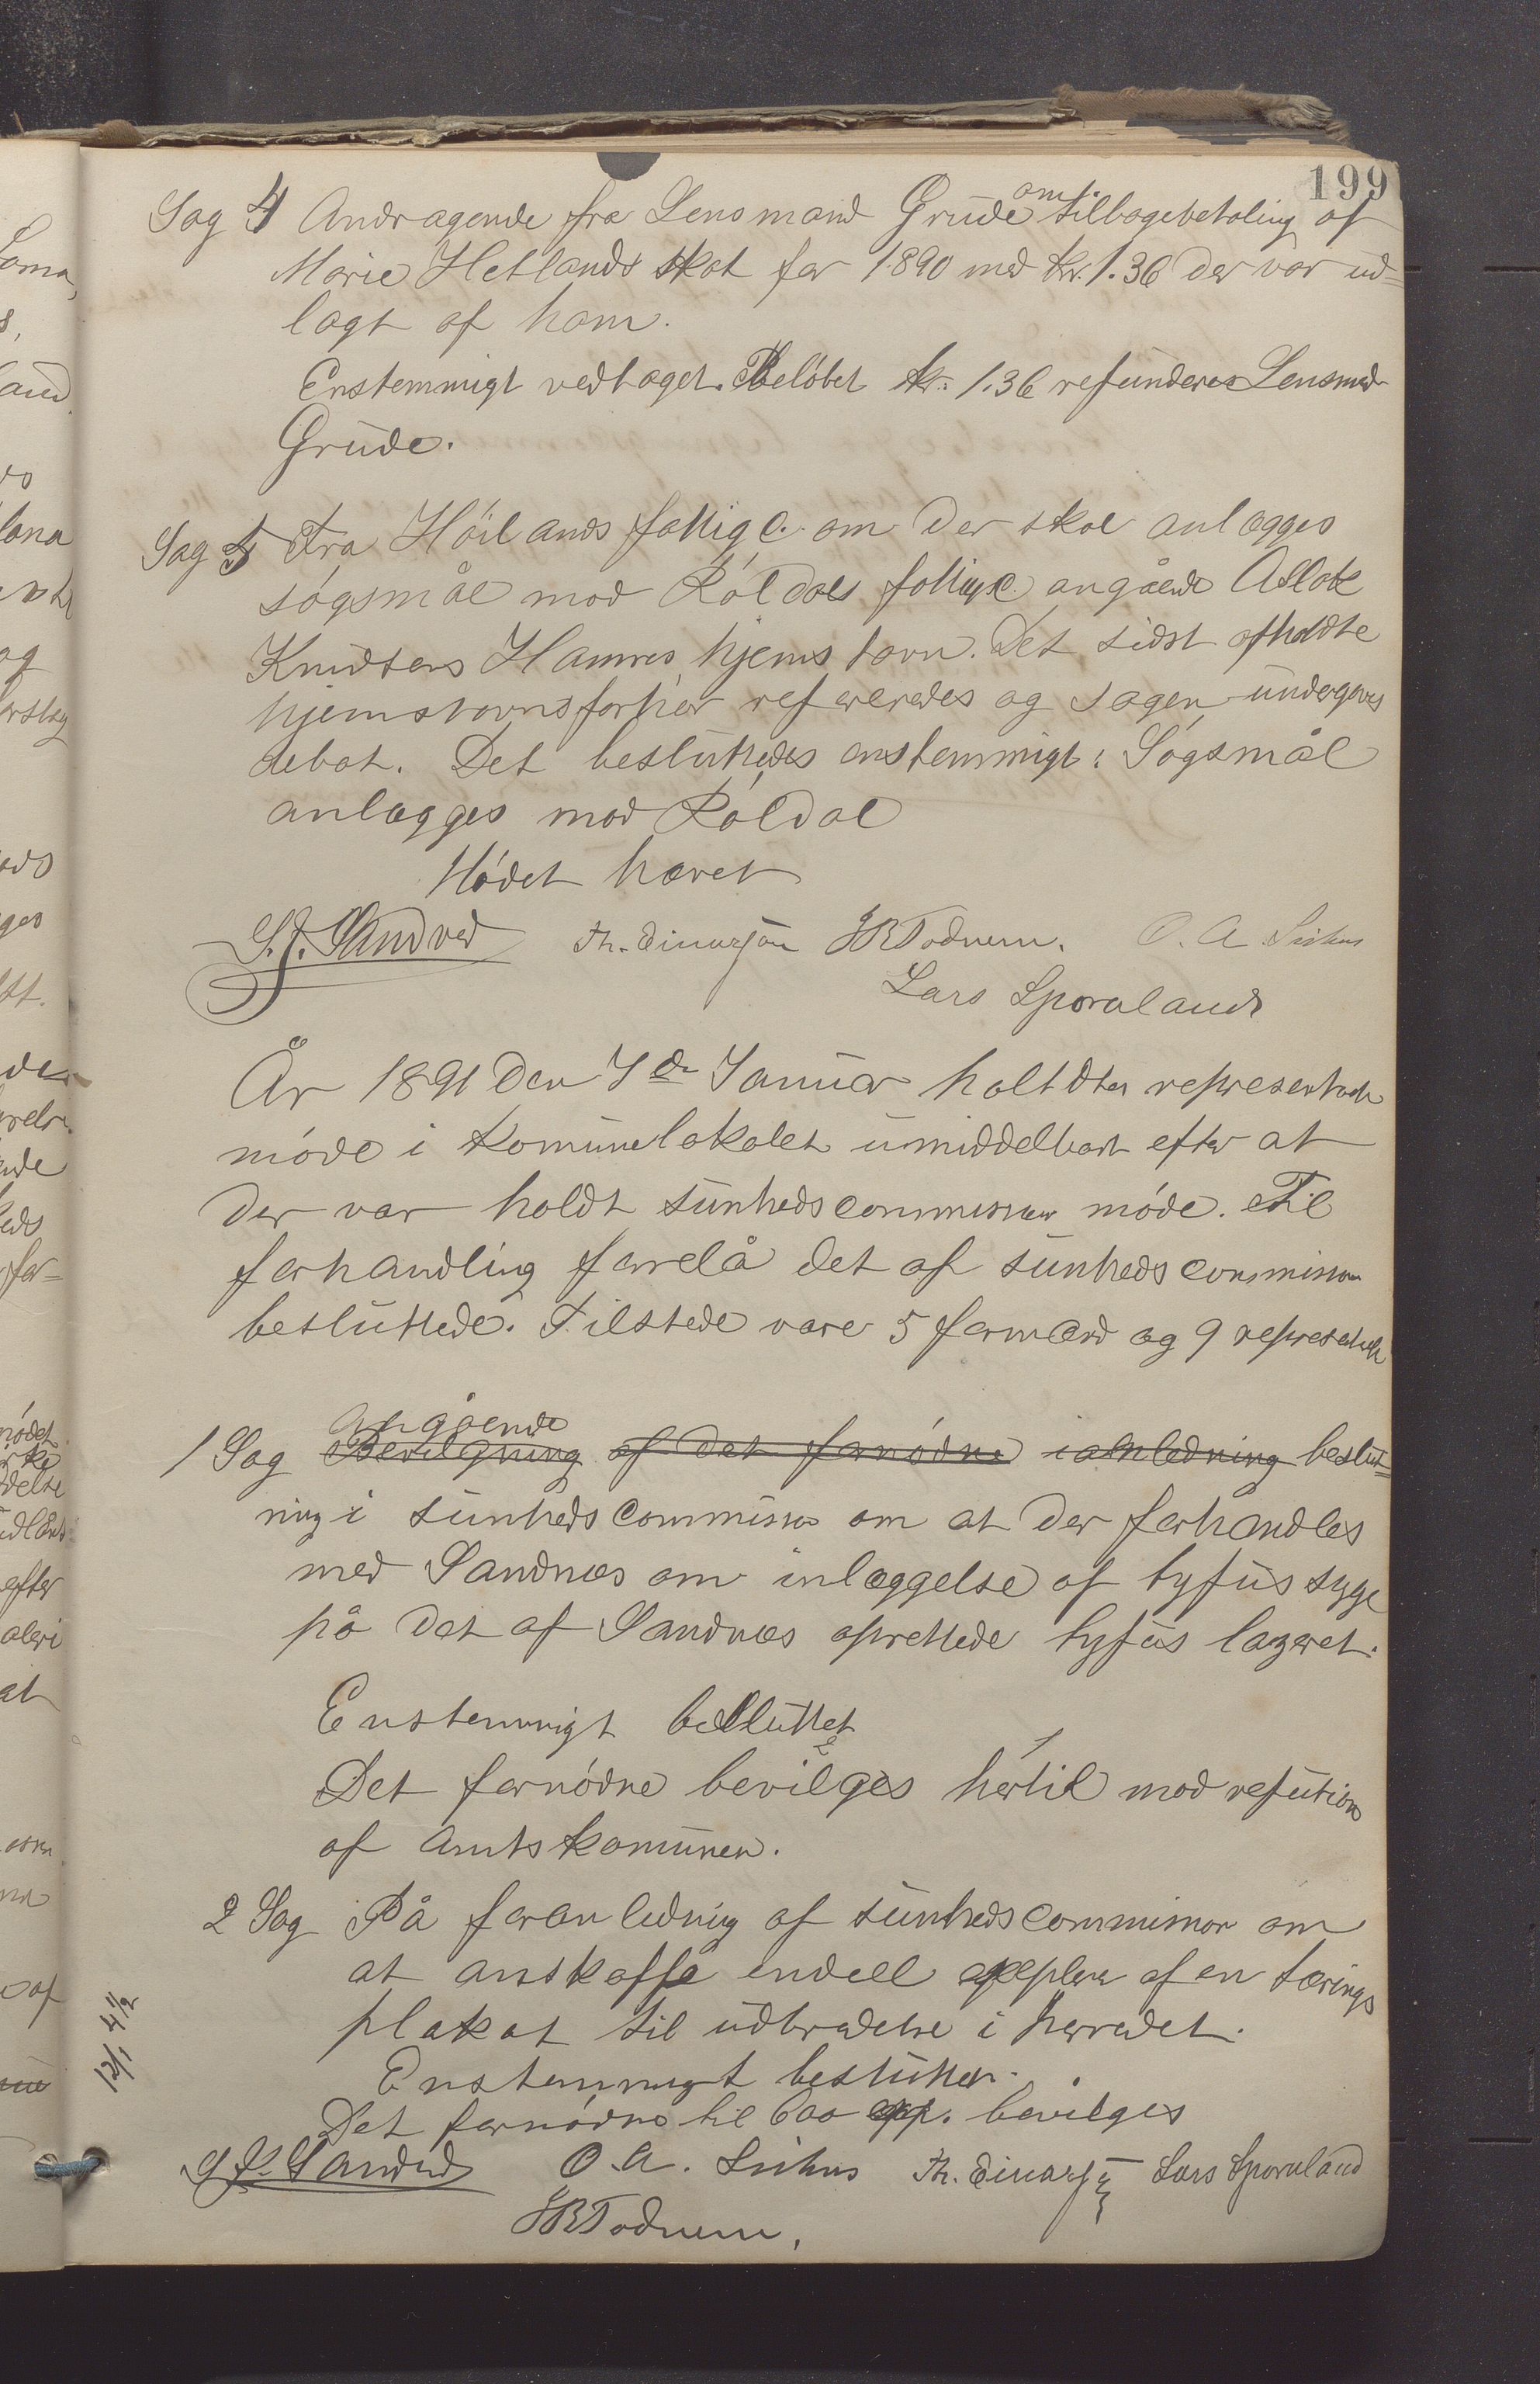 199
Sag 4 Andragende fra Lensmand Grude om tilbagebetaling af
Marie Hetlands skat for 1890 med kr. 1.36 der var ud=
lagt af ham.
Enstemmigt vedtaget. Beløbet kr. 1.36 refunderes Lensmd
Grude.
Sag 5 Fra Høilands fattigc. om der skal anlægges
søgsmål mod Røldals fattigc. angående Aslak
Knudsens Hamres hjemstavn. Det sidst afholdte
hjemstavnsforhør refereredes og sagen undergaves
debat. Det besluttedes enstemmigt: Søgsmål
anlægges mod Røldal
Mødet hævet
S. J. Sandved Th. Einarsen JBTodnem. O. A.
Lars Sporaland
År 1891 den 7de Januar holdtes represent
møde i Komunelokalet umiddelbart efter at
der var holdt sunhedscommission møde. Til
forhandling forelå det af sunhedscommission
besluttede. Tilstede vare 5 formænd og 9 represent
1 Sag Angående Bevilgning af det fornødne i anledning beslut=
ning i sunhedscommission om at der forhandles
med Sandnæs om inlæggelse af tyfus syge
på det af Sandnæs oprettede tyfus lazaret.
Enstemmigt besluttet
Det fornødne bevilges hertil mod refution
af Amtskomunen.
2 Sag På foranledning af sunhedscommission om
at anskaffe endell explarer af en tærings
plakat til udbredelse i herredet.
Enstemmigt besluttet.
Det fornødne til 600 exp. bevilges
12/1 4 1/2
S. J. Sandved O. A. Th. Einarsen Lars Sporaland
JBTodnem.